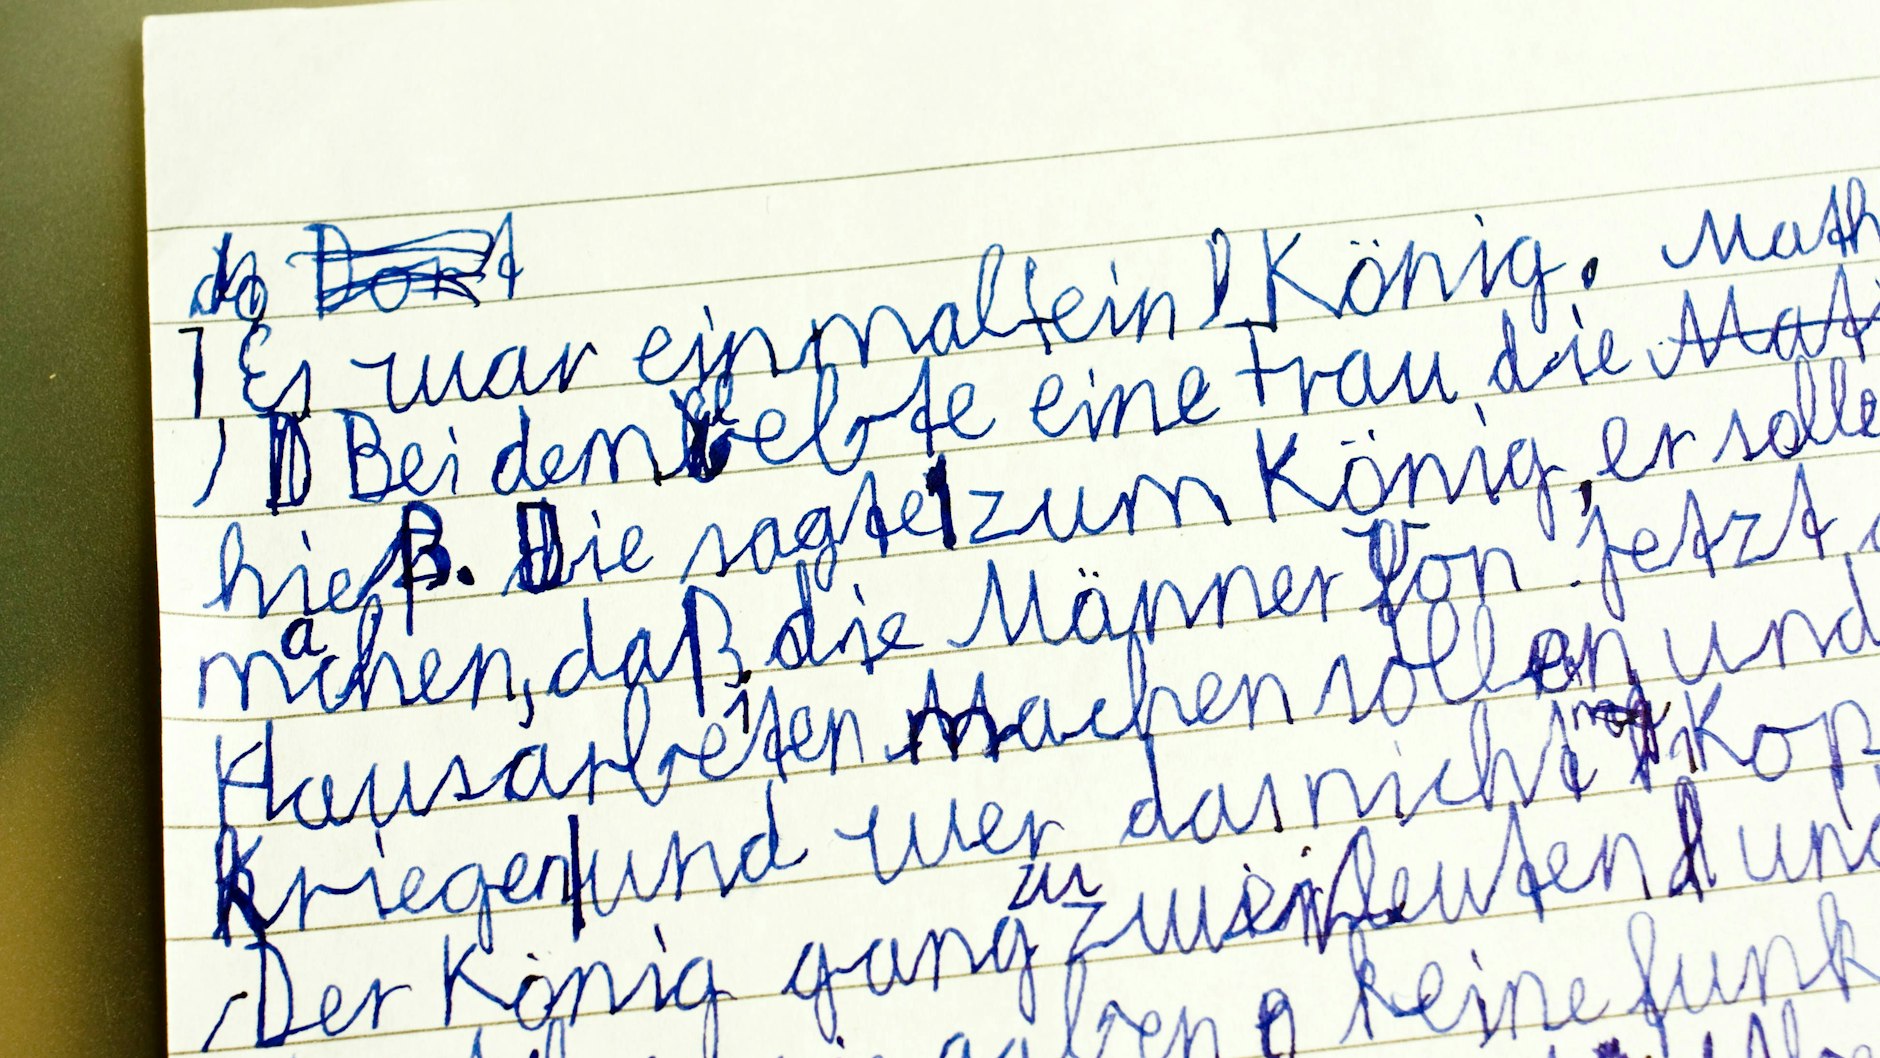 do Dort
Es war einmal ein König. Math
Bei dem lebte eine Frau die Mat
hieß. Die sagte zum König, er solle
machen, daß die Männer von jetzt
Hausarbeiten Machen sollen und
Kriegen und wer das nicht mag Kop
Der König gang zu zwei leuten und
gaben keine funk